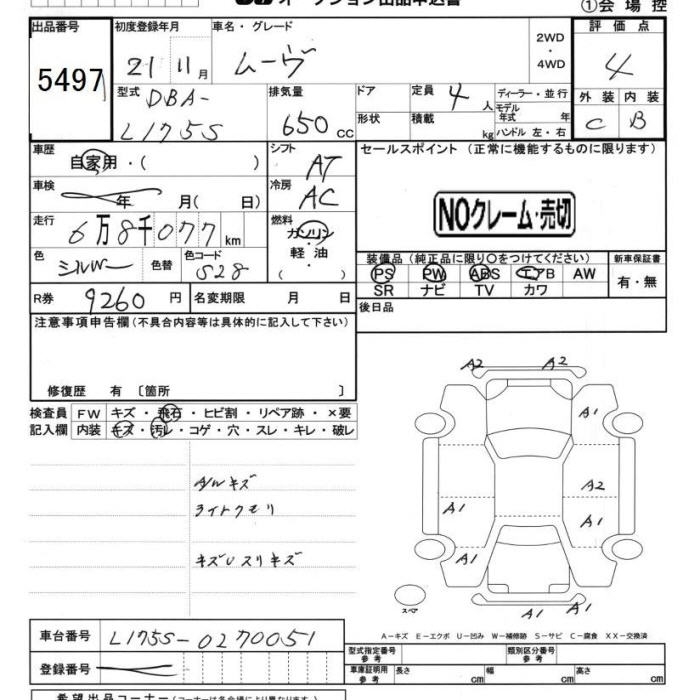 オークション出品申込書
①会場控
出品番号 初度登録年月 車名・グレード 2WD・4WD 評価点
5497 21 11月 ムーヴ 4
型式 DBA-L175S 排気量 650cc ドア 定員 4人 ディーラー・並行 外装 内装
形状 積載 kg モデル年式 年 ハンドル 左・右 C B
車歴 自家用・( ) シフト AT セールスポイント (正常に機能するものに限ります)
車検 年 月( 日) 冷房 AC
NOクレーム・売切
走行 6万8千077km 燃料 ガソリン・軽油・( )
色 シルバー 色替 色コード S28 装備品(純正品に限り○をつけてください) 新車保証書
PS PW ABS エアB AW 有・無
SR ナビ TV カワ
R券 9260円 名変期限 月 日 後日品
注意事項申告欄(不具合内容等は具体的に記入して下さい)
修復歴 有 〔箇所 〕
検査員 FW キズ・飛石・ヒビ割・リペア跡・×要
記入欄 内装 キズ・汚レ・コゲ・穴・スレ・キレ・破レ
A/Wキズ
ライトクモリ
キズUスリキズ
A2 A2
A1
A2
A1 A1
A1 A1
A1 A1
スペア
A-キズ E-エクボ U-凹み W-補修跡 S-サビ C-腐食 XX-交換済
車台番号 L175S-0270051
型式指定番号 参考 類別区分番号 参考
登録番号 車庫証明用 参考 長さ cm 幅 cm 高さ cm
希望出品コーナー(コーナーは各会場により異なります)